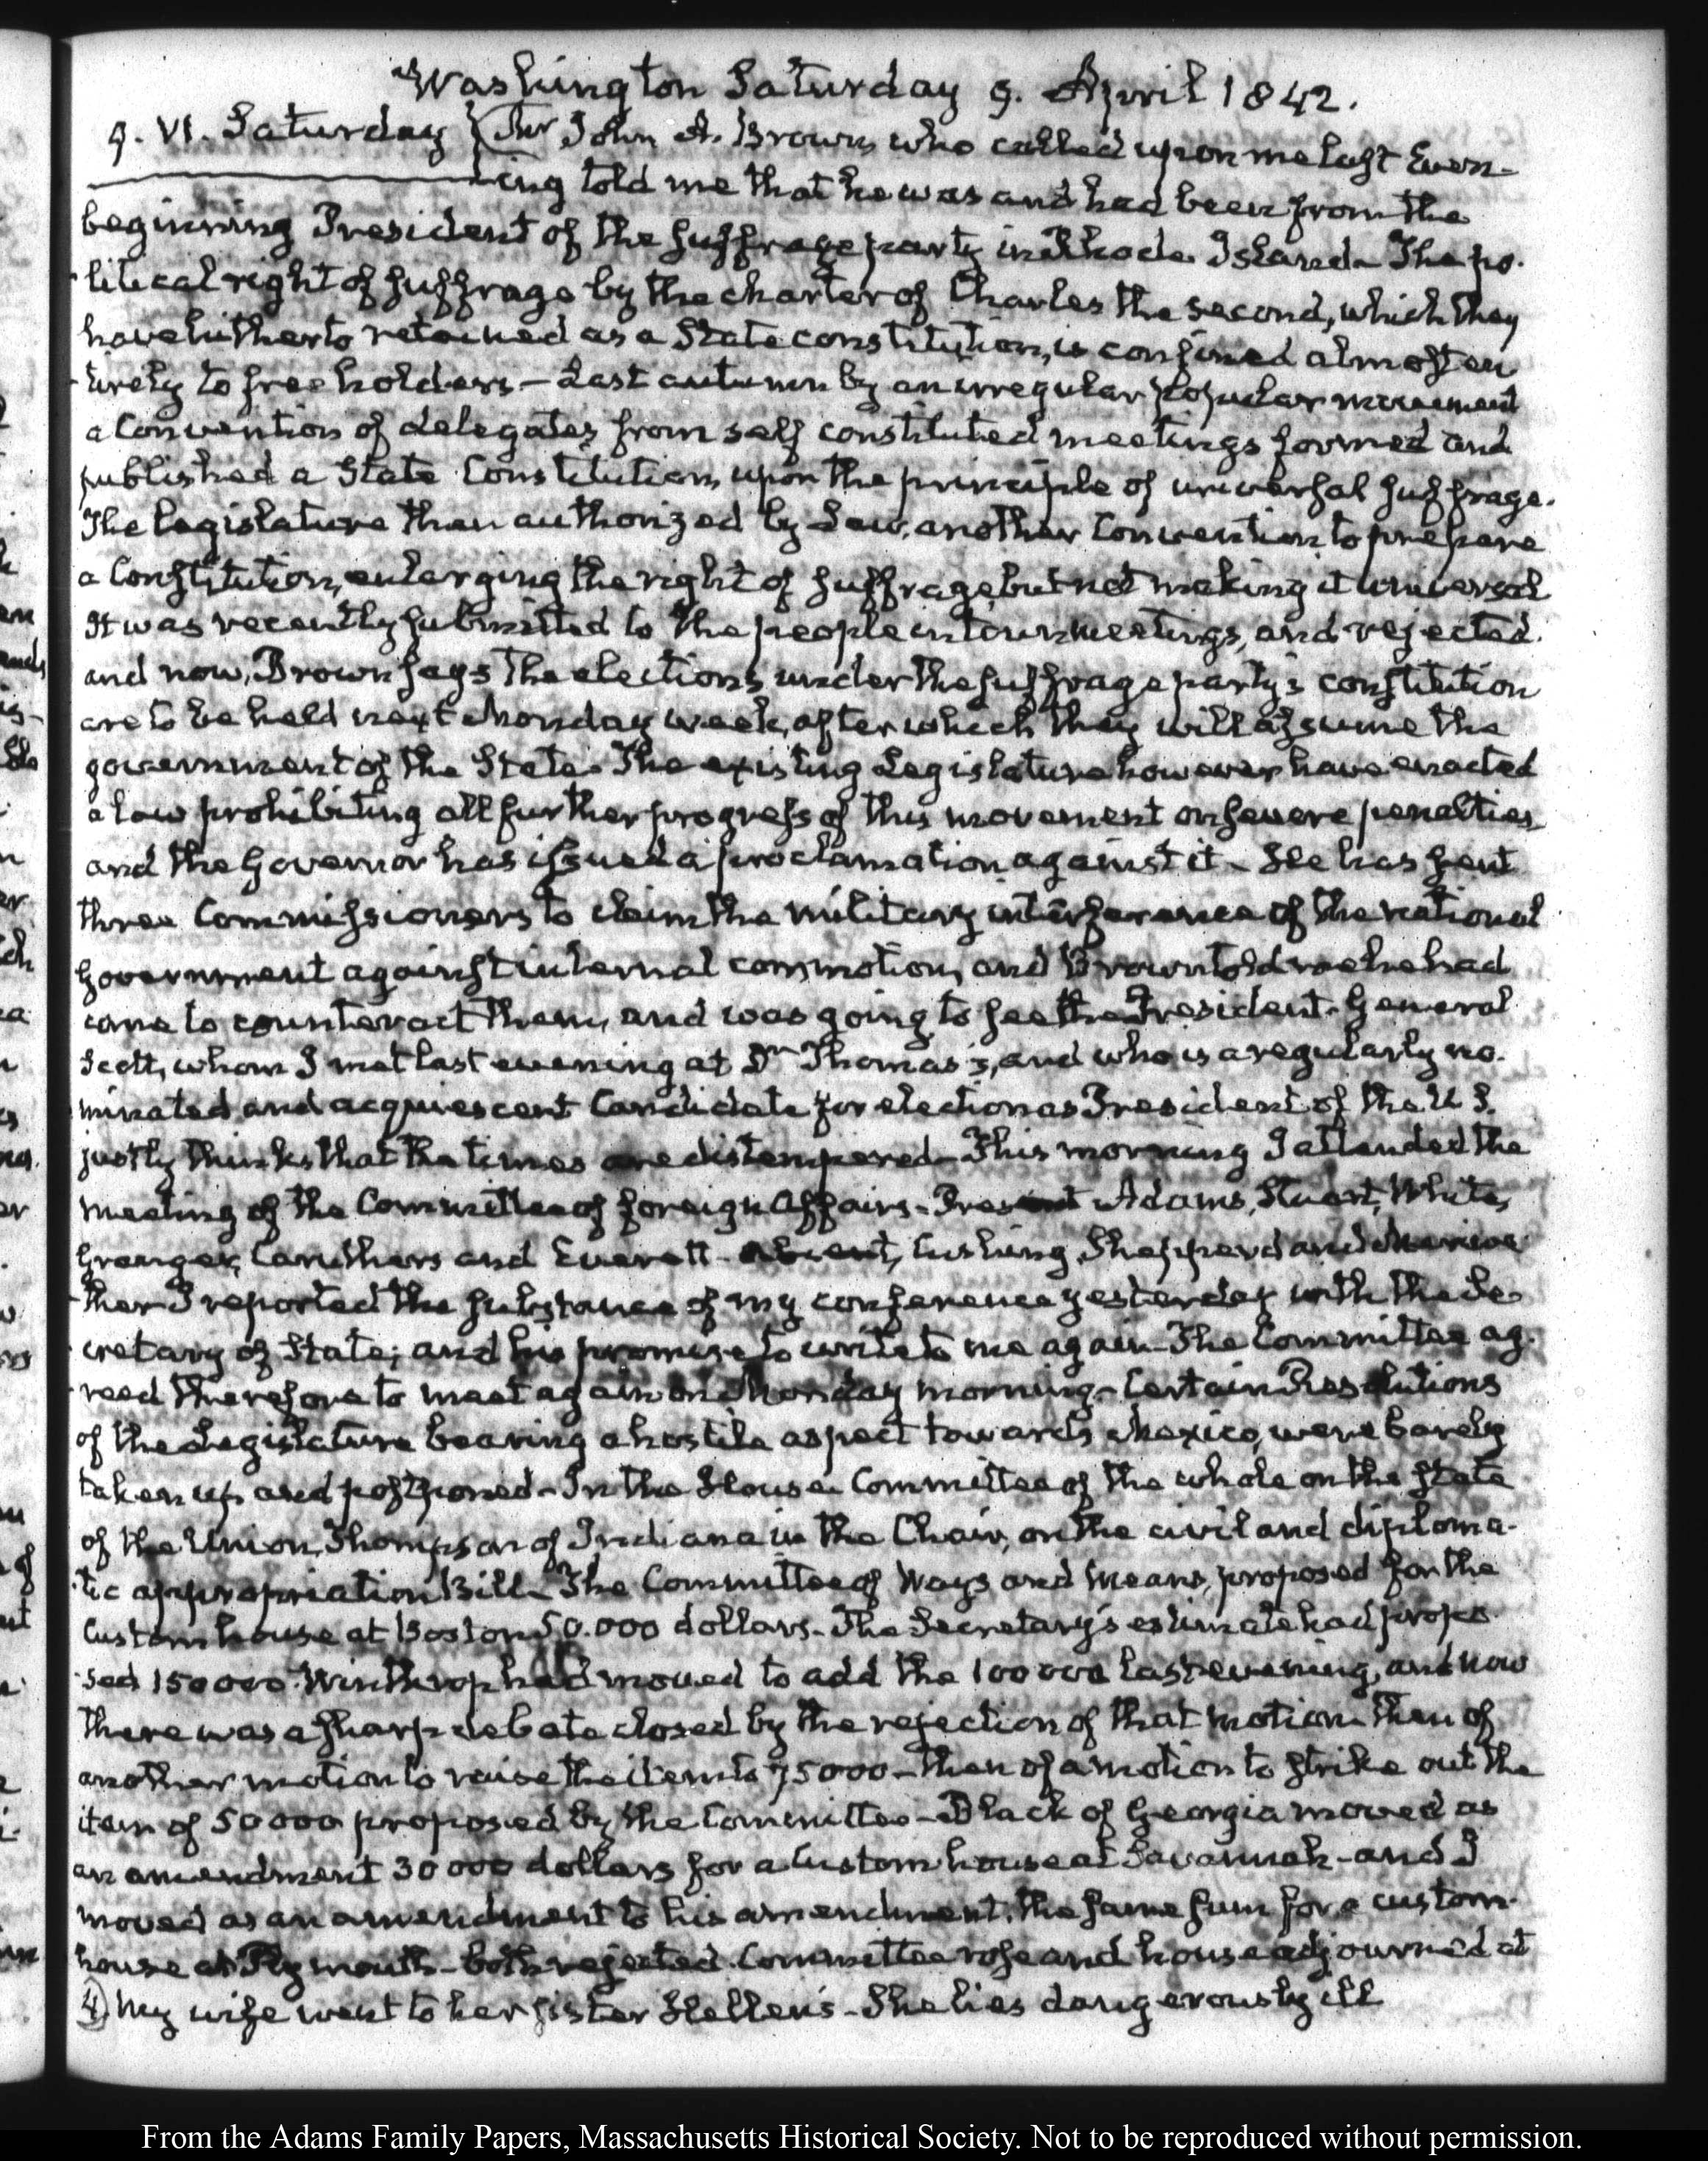 Washington Saturday 9. April 1842.
9. VI. Saturday { Mr John A. Brown, who called upon me last Even-
ing told me that he was and had been from the
beginning President of the suffrage party in Rhode Island. The po-
litical right of suffrage by the charter of Charles the second, which they
have hitherto retained as a State constitution, is confined almost en
tirely to freeholders — Last autumn by an irregular popular movement
a Convention of delegates from self constituted meetings formed and
published a State Constitution, upon the principle of universal suffrage.
The Legislature then authorized by Law, another Convention to prepare
a Constitution, enlarging the right of suffrage, but not making it universal
It was recently submitted to the people in town meetings, and rejected.
and now, Brown says the elections under the suffrage party's constitution
are to be held next Monday week, after which they will assume the
government of the State. The existing Legislature however have enacted
a law prohibiting all further progress of this movement on severe penalties
and the Governor has issued a proclamation against it - He has sent
three Commissioners to claim the military interference of the national
government against internal commotion, and Brown told me he had
come to counteract them, and was going to see the President. General
Scott, whom I met last evening at Dr Thomas's, and who is a regularly no-
minated and acquiescent Candidate for election as President of the U.S.
justly thinks that the times are distempered - This morning I attended the
meeting of the Committee of foreign Affairs - Present Adams, Stuart, White,
Granger, Caruthers and Everett - Absent, Cushing, Shepperd and Meriwe
ther I reported the substance of my conference yesterday with the Se
cretary of State; and his promise to write to me again - The Committee ag-
reed therefore to meet again on Monday morning - Certain Resolutions
of the Legislature bearing a hostile aspect towards Mexico, were barely
taken up and postponed - In the House Committee of the whole on the state
of the Union, Thompson of Indiana in the Chair, on the civil and diploma-
tic appropriation Bill - The Committee of Ways and Means, proposed for the
Custom house at Boston 50.000 dollars - The Secretary's estimate had propo
sed 150000. Winthrop had moved to add the 100000 last evening, and now
there was a sharp debate closed by the rejection of that motion. Then of
another motion to raise the item to 75000 - then of a motion to strike out the
item of 50000 proposed by the Committee - Black of Georgia moved as
an amendment 30000 dollars for a Custom house at Savannah - and I
moved as an amendment to his amendment, the same sum for a custom-
house at Plymouth - both rejected. Committee rose and house adjourned at
4) My wife went to her sister Hellen's - She lies dangerously ill
From the Adams Family Papers, Massachusetts Historical Society. Not to be reproduced without permission.